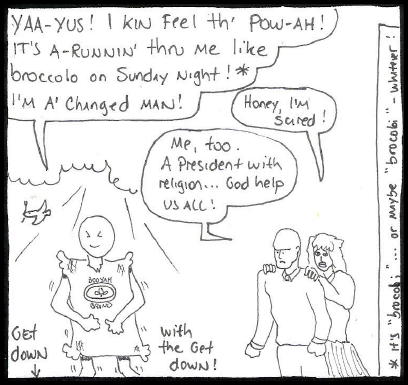 YAA-YUS! I KIN FEEL TH' POW-AH!
IT'S A-RUNNIN' thru ME like
broccolo on SUNDAY Night!*
I'M A' Changed MAN!
Honey, I'm
scared!
Me, too.
A President with
religion... God help
US ALL!
BOOYAH
GET
DOWN
with
the Get
down!
* It's "brocobi"... or maybe "brocobi" - whatever!